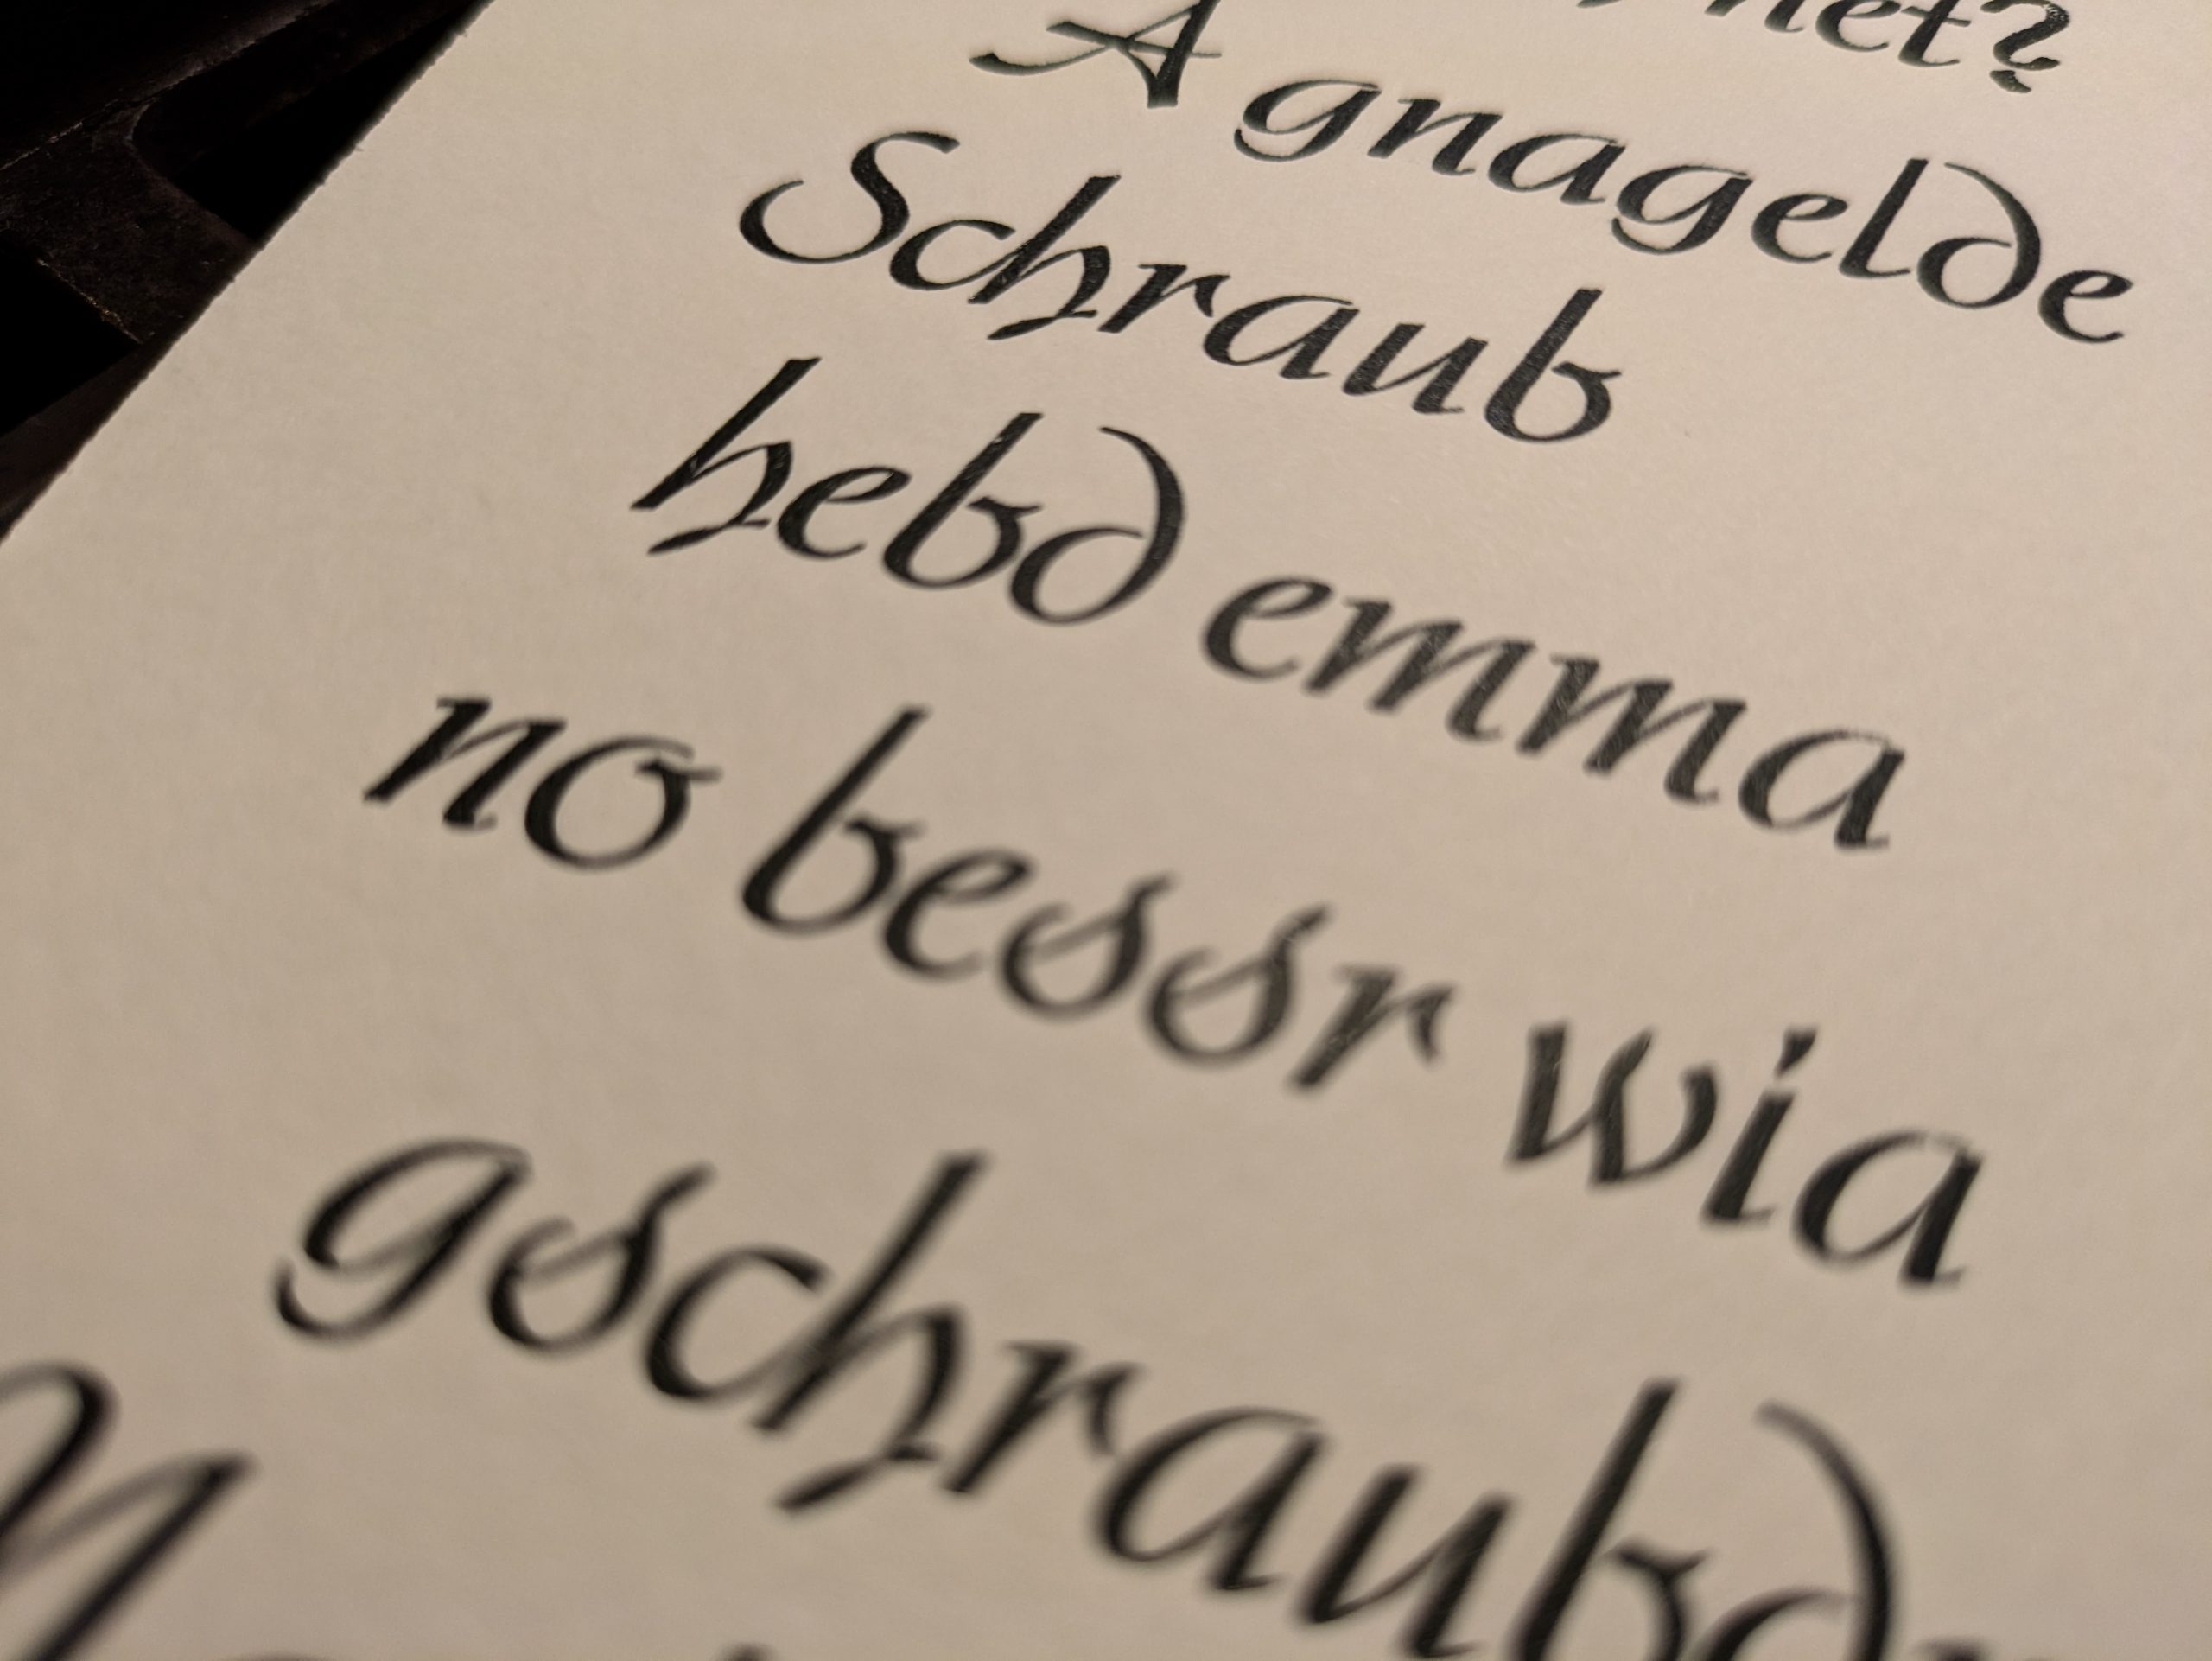 net?
A gnagelde
Schraub
hebd emma
no bessr wia
gschraubd